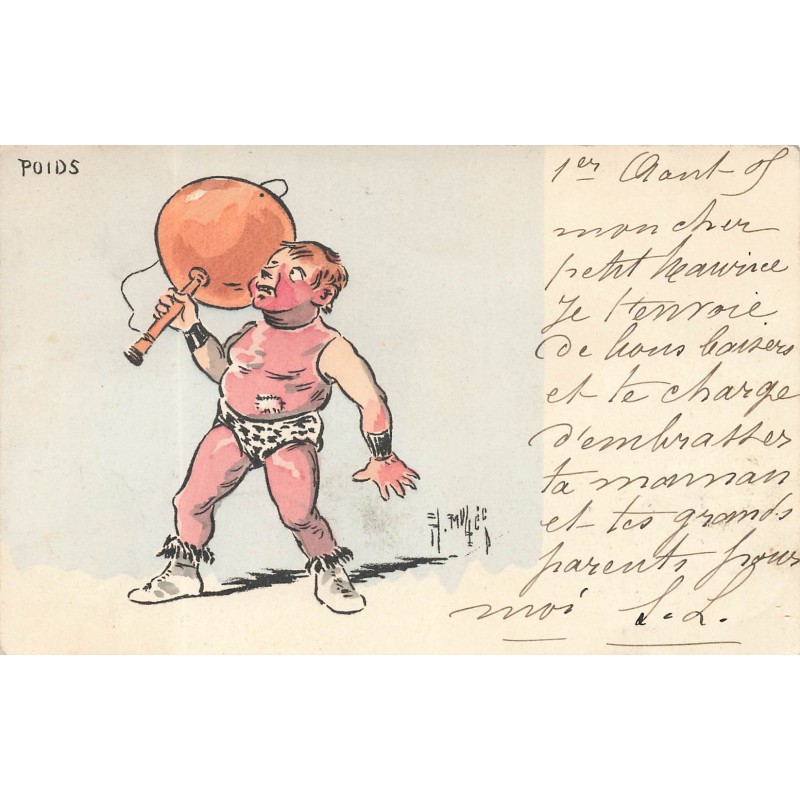 POIDS
1er Aout 05
mon cher
petit Maurice
Je t'envoie
de bons baisers
et te charge
d'embrasser
ta maman
et tes grands
parents pour
moi S.L.
H.